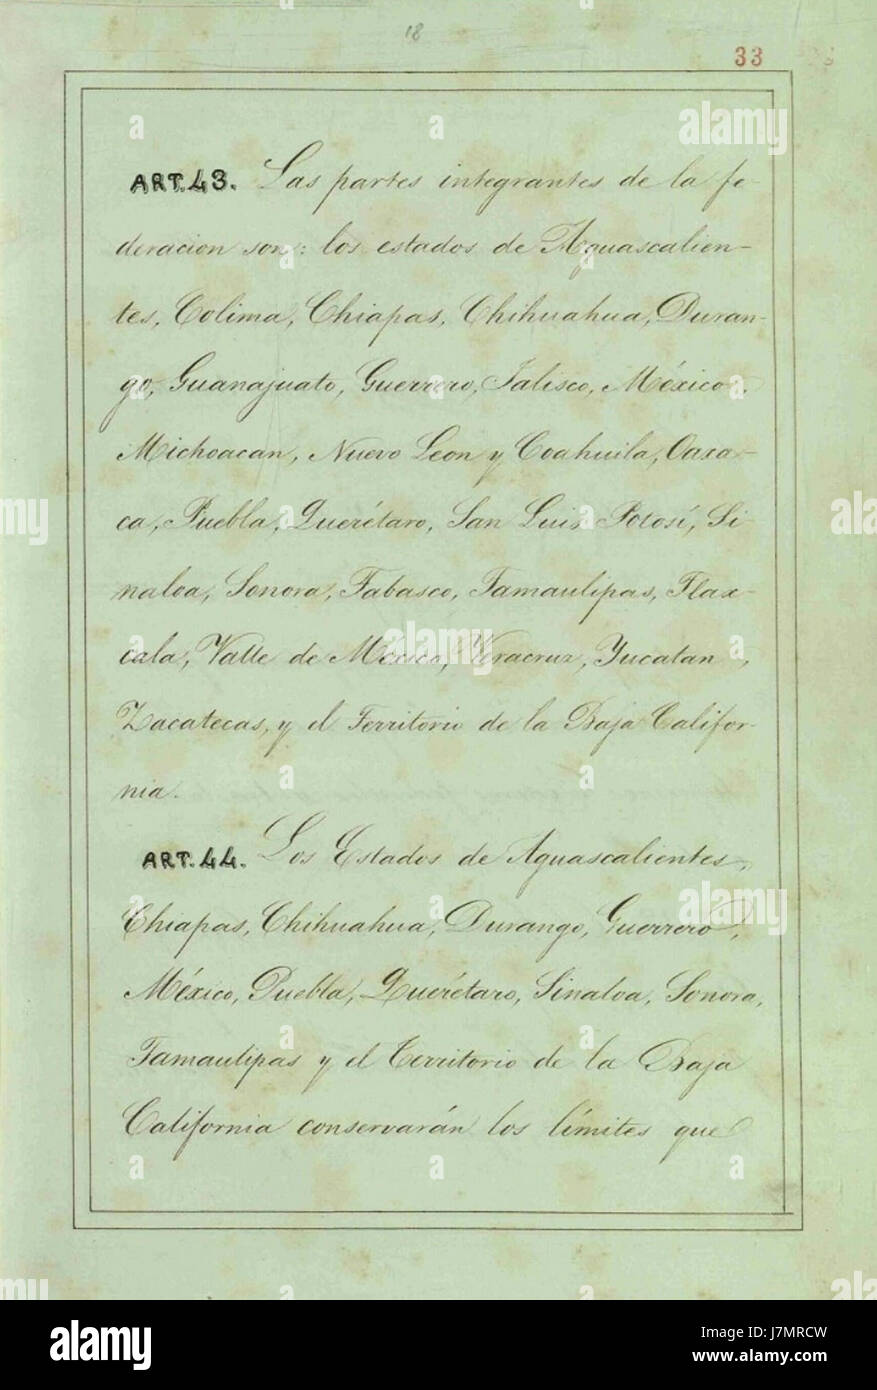 18
33
ART.43. Las partes integrantes de la fe-
deracion son: los estados de Aguascalien-
tes, Colima, Chiapas, Chihuahua, Duran-
go, Guanajuato, Guerrero, Jalisco, México,
Michoacan, Nuevo Leon y Coahuila, Oaxa-
ca, Puebla, Querétaro, San Luis Potosí, Si-
naloa, Sonora, Tabasco, Tamaulipas, Tlax-
cala, Valle de México, Veracruz, Yucatan,
Zacatecas, y el Territorio de la Baja Califor-
nia.
ART.44. Los Estados de Aguascalientes,
Chiapas, Chihuahua, Durango, Guerrero,
México, Puebla, Querétaro, Sinaloa, Sonora,
Tamaulipas y el Territorio de la Baja
California conservarán los límites que
alamy
Image ID: J7MRCW
www.alamy.com